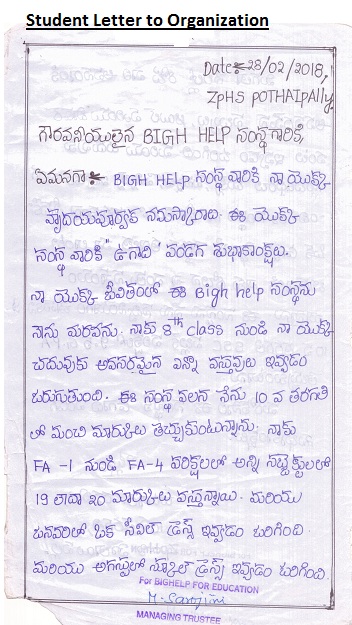 Student Letter to Organization
Date:- 28/02/2018,
ZPHS POTHAIPAlly
గౌరవనీయులైన BIGH HELP సంస్థగారికి,
ఏమనగా:- BIGH HELP సంస్థ వారికి నా యొక్క
హృదయపూర్వక నమస్కారాలు. ఈ యొక్క
సంస్థ వారికి "ఉగాది" పండగ శుభాకాంక్షలు.
నా యొక్క జీవితంలో ఈ Bigh help సంస్థను
నేను మరవను. నాకు 8th class నుండి నా యొక్క
చదువుకు అవసరమైన ఎన్నో వస్తువులు ఇవ్వడం
జరుగుతుంది. ఈ సంస్థ వలన నేను 10 వ తరగతి
లో మంచి మార్కులు తెచ్చుకుంటున్నాను. నాకు
FA -1 నుండి FA-4 పరీక్షలలో అన్ని సబ్జెక్టులలో
19 లేదా 20 మార్కులు వస్తున్నాయి. మరియు
జనవరిలో ఒక సివిల్ డ్రెస్స్ ఇవ్వడం జరిగింది.
మరియు ఆగస్టులో స్కూల్ డ్రెస్స్ ఇవ్వడం జరిగింది.
For BIGHELP FOR EDUCATION
M. Sarojini
MANAGING TRUSTEE